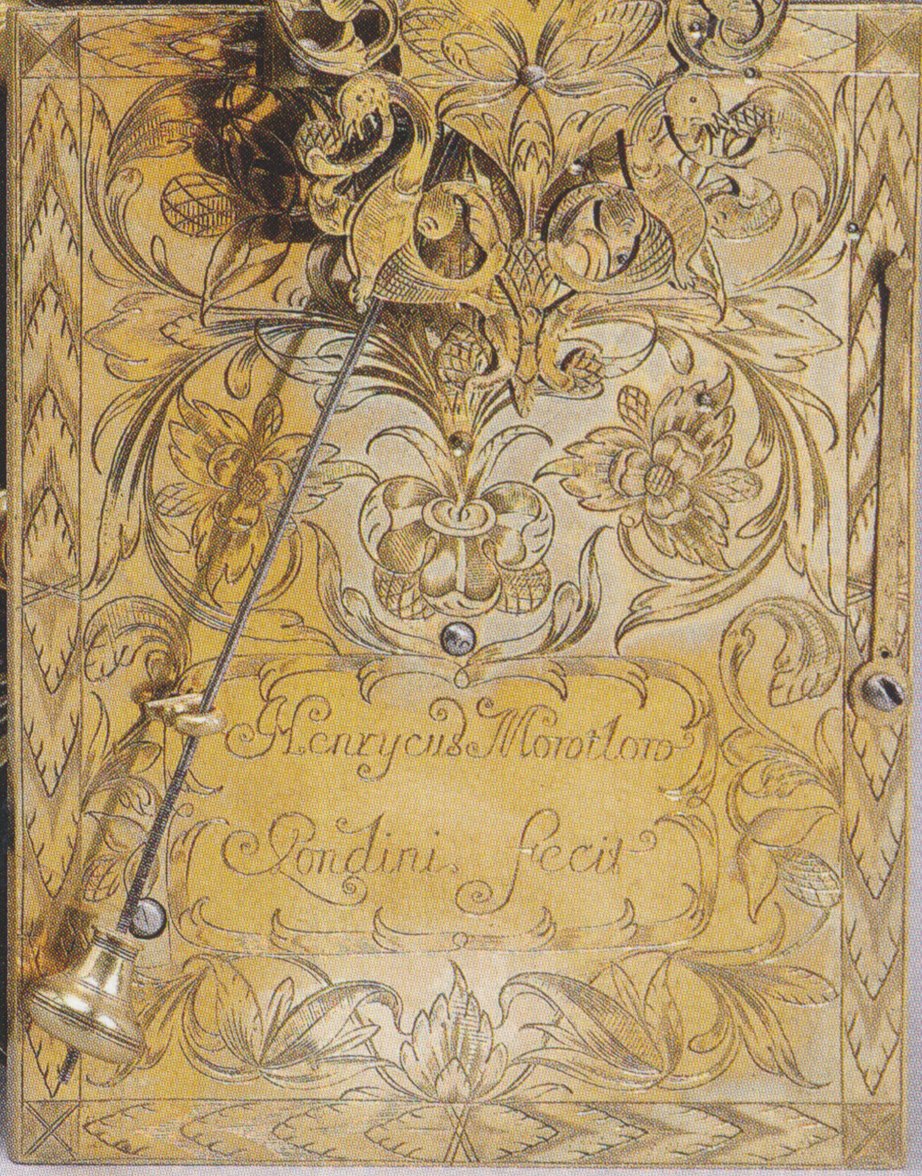 Henrycus Mowtlow
Londini fecit